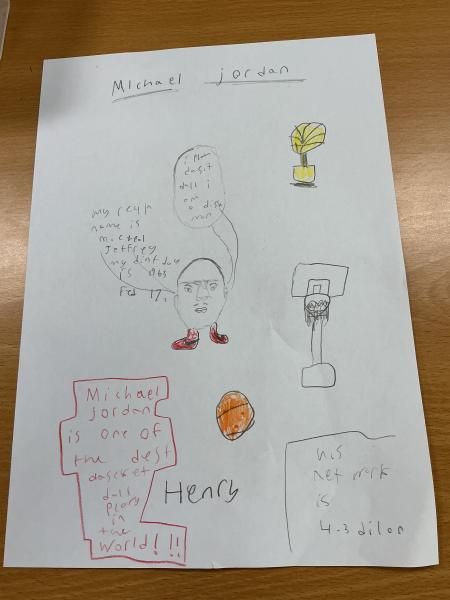 Michael jordan
i Plam
dasit
dall i
am
a dish
man
my reyl
name is
micheal
Jeffrey
my dirt day
is 1963
Fed 17,
Michael
jordan
is one of
the dest
dascket
dall
Plars
in
the
World!!!
Henry
his
net work
is
4.3 dilon